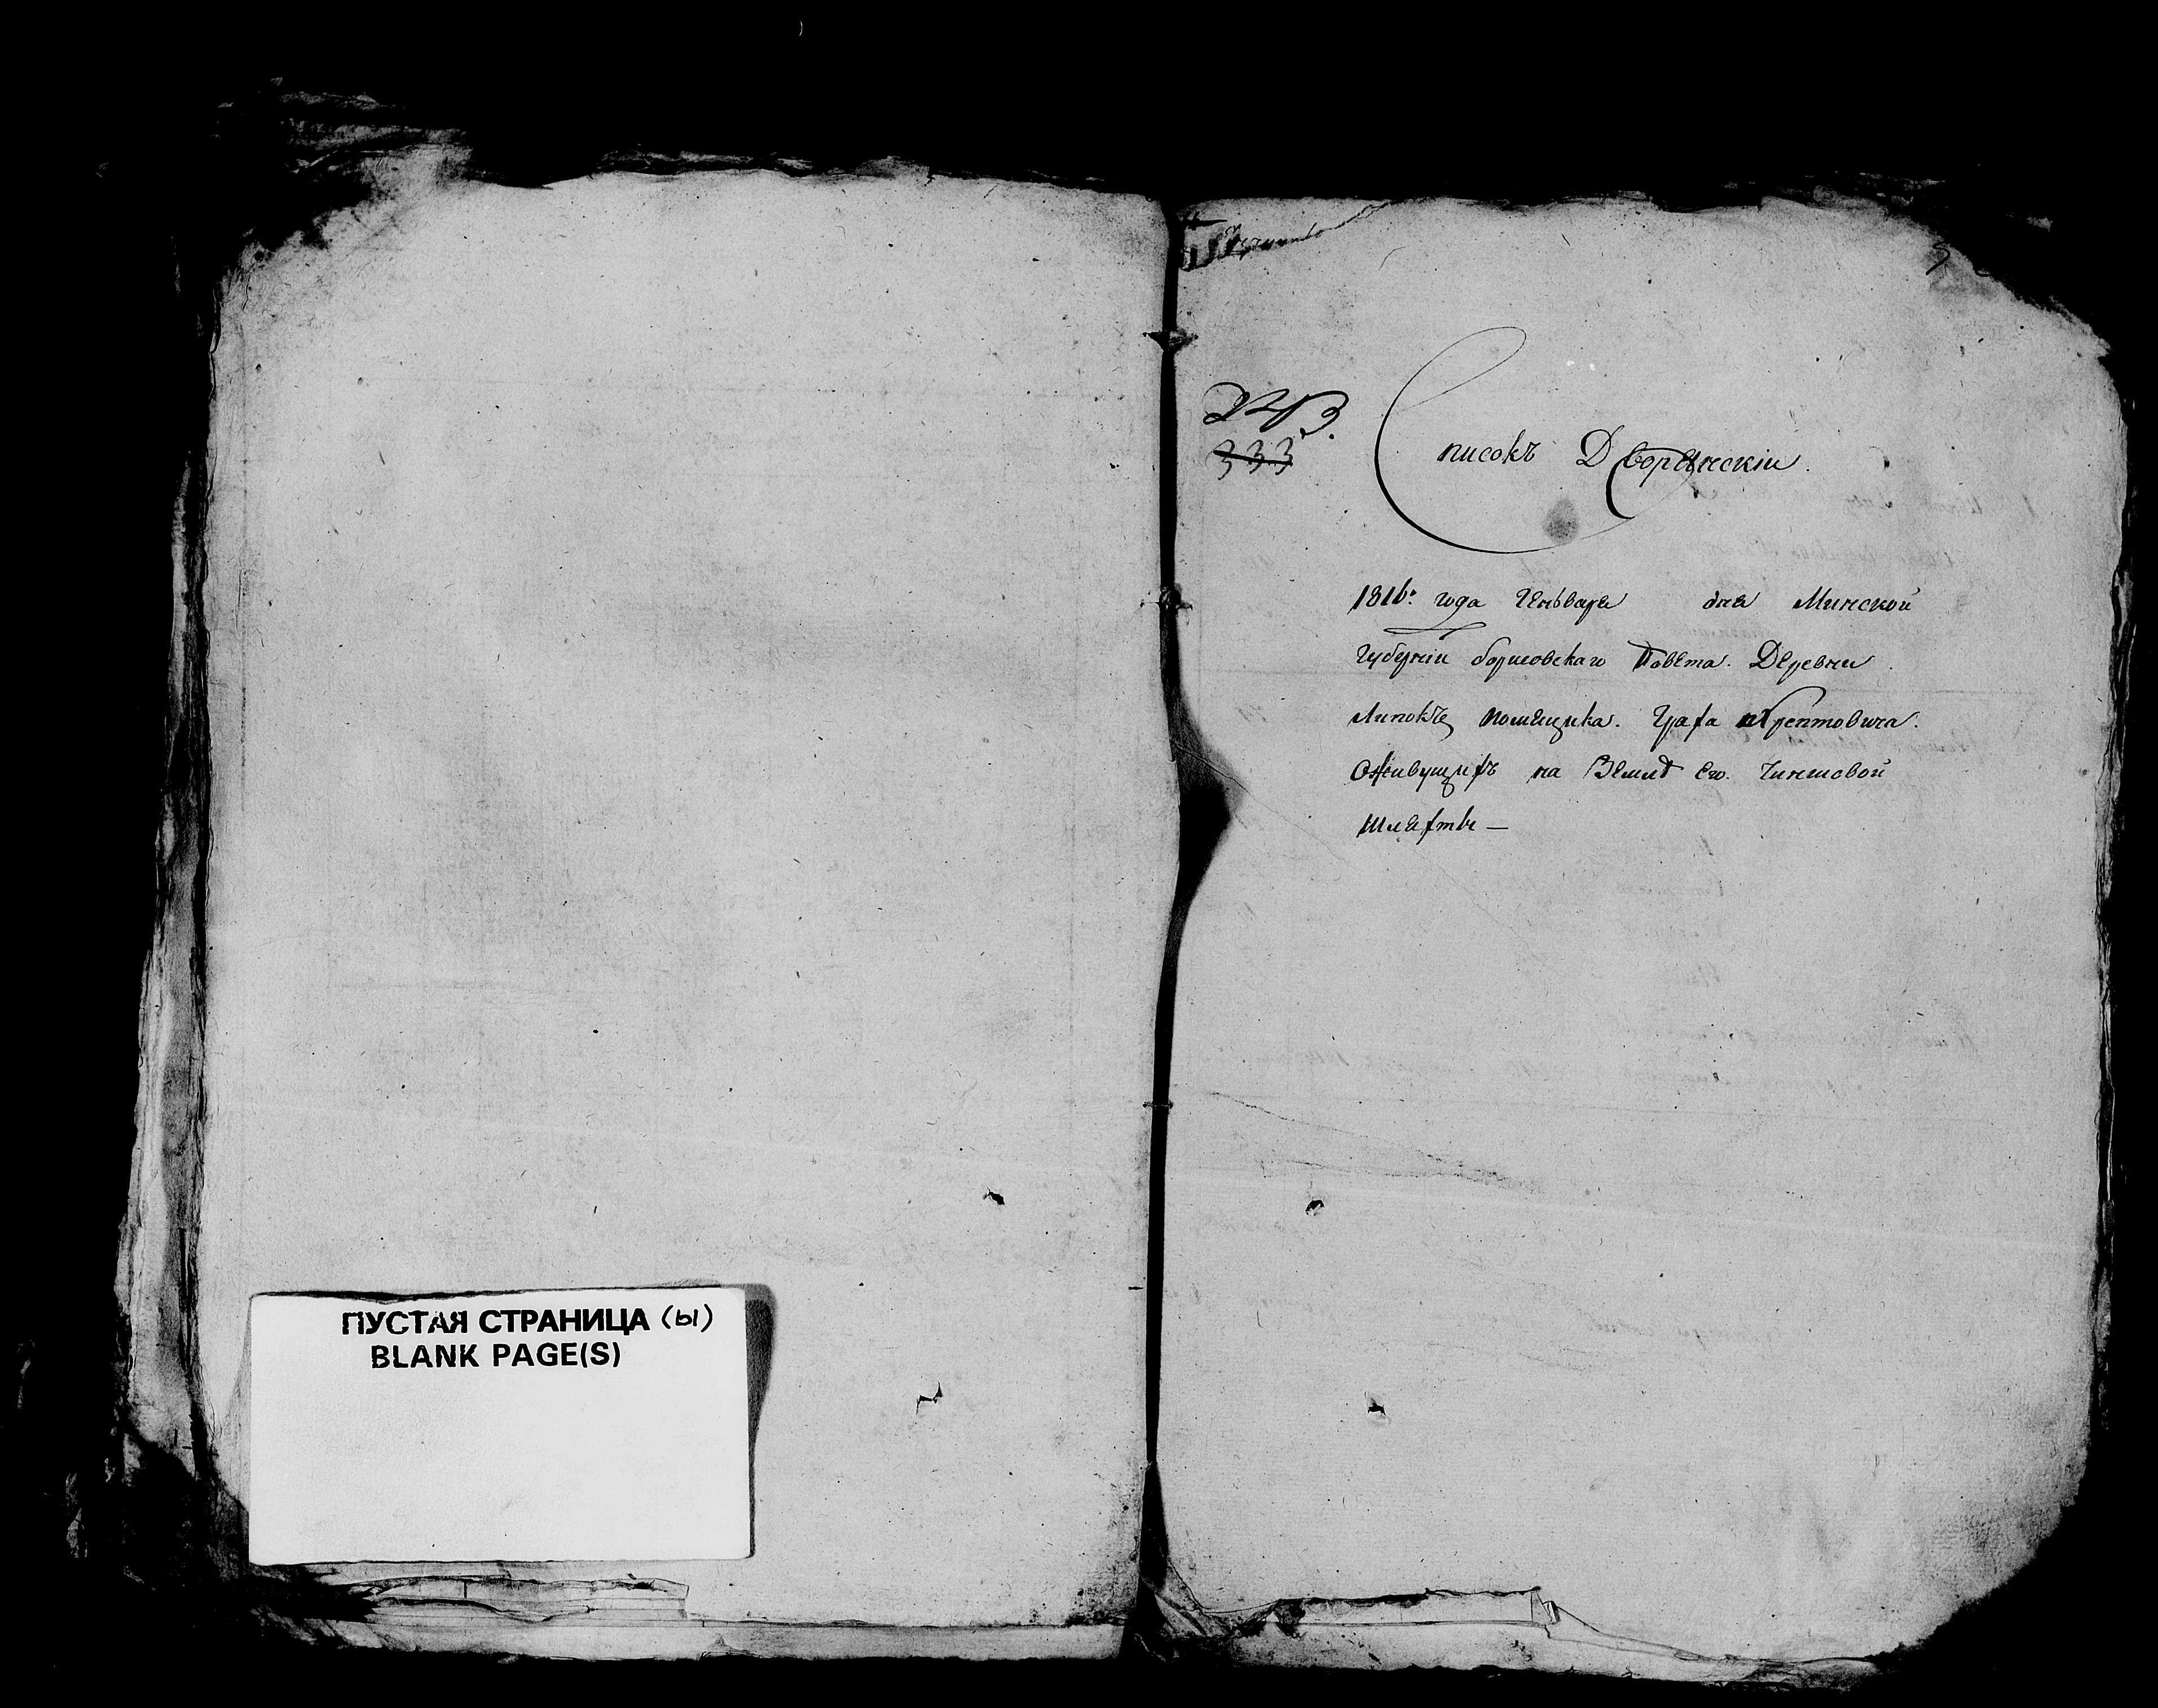 ПУСТАЯ СТРАНИЦА (Ы)
BLANK PAGE(S)
333
Списокъ Дворянскіи.
1816: года Генъваря дня Минской
Губерніи борисовскаго Повета. Деревни
Липокъ помещика. Графа Хрептовича.
Оживущихъ на Земле Его. Чиншовой
Шляхты —